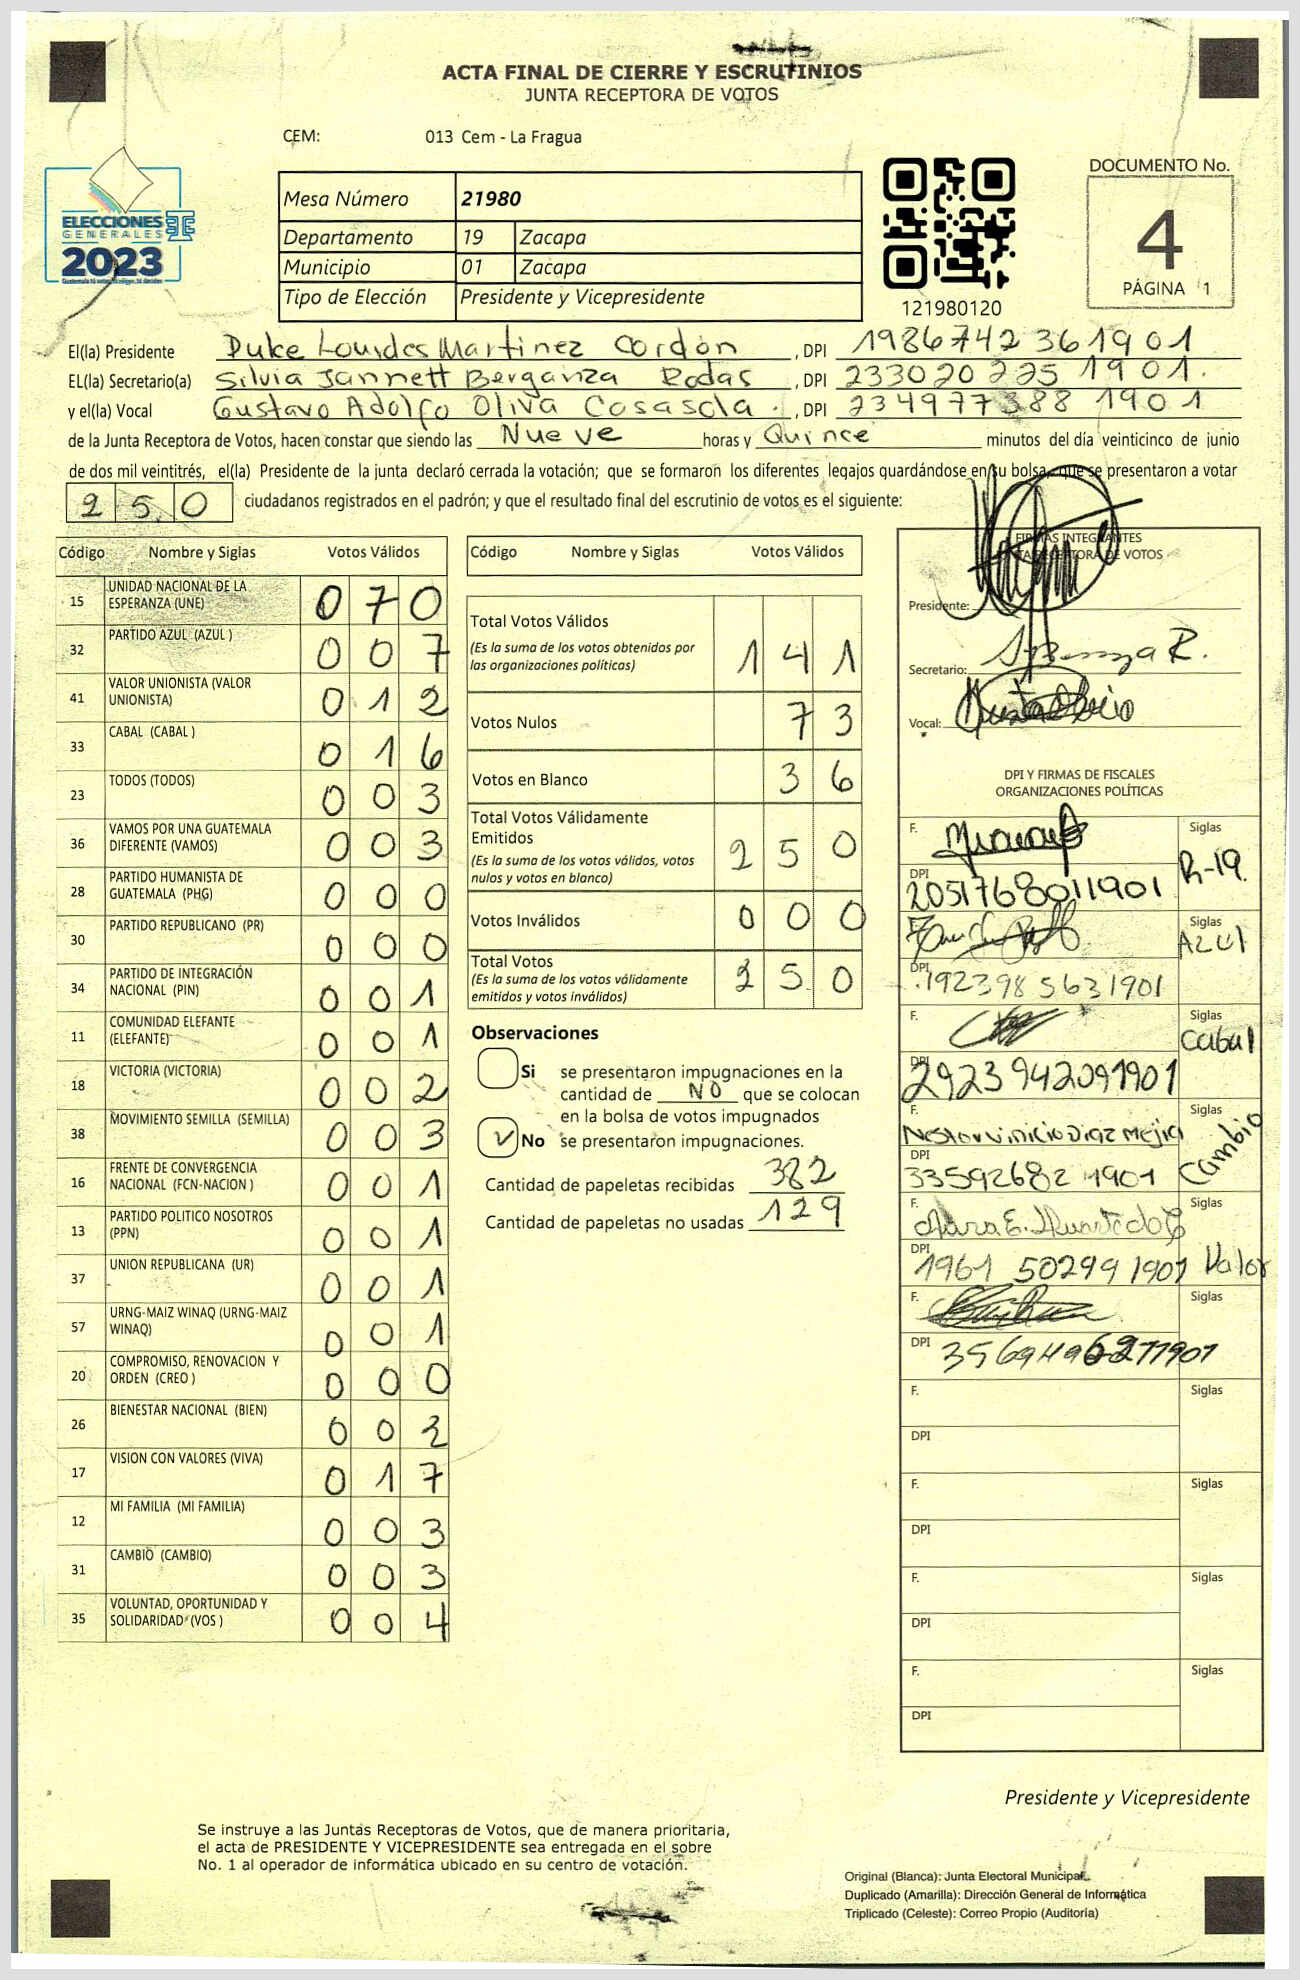 ACTA FINAL DE CIERRE Y ESCRUTINIOS
JUNTA RECEPTORA DE VOTOS
CEM: 013 Cem - La Fragua
ELECCIONES
GENERALES
2023
Mesa Número 21980
Departamento 19 Zacapa
Municipio 01 Zacapa
Tipo de Elección Presidente y Vicepresidente
121980120
DOCUMENTO No.
4
PÁGINA 1
El(la) Presidente Dulce Lourdes Martinez Cordón, DPI 1986742361901
EL(la) Secretario(a) Silvia Jannett Berganza Rodas, DPI 2330202251901.
y el(la) Vocal Gustavo Adolfo Oliva Casasola., DPI 2349773881901
de la Junta Receptora de Votos, hacen constar que siendo las Nueve horas y Quince minutos del día veinticinco de junio
de dos mil veintitrés, el(la) Presidente de la junta declaró cerrada la votación; que se formaron los diferentes legajos guardándose en su bolsa, que se presentaron a votar
250 ciudadanos registrados en el padrón; y que el resultado final del escrutinio de votos es el siguiente:
Código Nombre y Siglas Votos Válidos
15 UNIDAD NACIONAL DE LA ESPERANZA (UNE) 070
32 PARTIDO AZUL (AZUL ) 007
41 VALOR UNIONISTA (VALOR UNIONISTA) 012
33 CABAL (CABAL ) 016
23 TODOS (TODOS) 003
36 VAMOS POR UNA GUATEMALA DIFERENTE (VAMOS) 003
28 PARTIDO HUMANISTA DE GUATEMALA (PHG) 000
30 PARTIDO REPUBLICANO (PR) 000
34 PARTIDO DE INTEGRACIÓN NACIONAL (PIN) 001
11 COMUNIDAD ELEFANTE (ELEFANTE) 001
18 VICTORIA (VICTORIA) 002
38 MOVIMIENTO SEMILLA (SEMILLA) 003
16 FRENTE DE CONVERGENCIA NACIONAL (FCN-NACION ) 001
13 PARTIDO POLITICO NOSOTROS (PPN) 001
37 UNION REPUBLICANA (UR) 001
57 URNG-MAIZ WINAQ (URNG-MAIZ WINAQ) 001
20 COMPROMISO, RENOVACION Y ORDEN (CREO ) 000
26 BIENESTAR NACIONAL (BIEN) 002
17 VISION CON VALORES (VIVA) 017
12 MI FAMILIA (MI FAMILIA) 003
31 CAMBIO (CAMBIO) 003
35 VOLUNTAD, OPORTUNIDAD Y SOLIDARIDAD (VOS ) 004
Código Nombre y Siglas Votos Válidos
Total Votos Válidos 141
(Es la suma de los votos obtenidos por
las organizaciones políticas)
Votos Nulos 73
Votos en Blanco 36
Total Votos Válidamente
Emitidos 250
(Es la suma de los votos válidos, votos
nulos y votos en blanco)
Votos Inválidos 000
Total Votos 250
(Es la suma de los votos válidamente
emitidos y votos inválidos)
Observaciones
Si se presentaron impugnaciones en la
cantidad de NO que se colocan
en la bolsa de votos impugnados
No se presentaron impugnaciones.
Cantidad de papeletas recibidas 382
Cantidad de papeletas no usadas 129
FIRMAS INTEGRANTES
JUNTA RECEPTORA DE VOTOS
Presidente:
Secretario:
Vocal:
DPI Y FIRMAS DE FISCALES
ORGANIZACIONES POLÍTICAS
F. Siglas
DPI 2051768011901 R-19.
F. Siglas
DPI 1923985631901 AZUl
F. Siglas
DPI 2923942091901 Cabal
F. Nestor Vinicio Diaz Mejia Siglas
DPI 335926821901 Cambio
F. Siglas
DPI 1961502991901 Valor
F. Siglas
DPI
F. Siglas
DPI
F. Siglas
DPI
F. Siglas
DPI
F. Siglas
DPI
Presidente y Vicepresidente
Se instruye a las Juntas Receptoras de Votos, que de manera prioritaria,
el acta de PRESIDENTE Y VICEPRESIDENTE sea entregada en el sobre
No. 1 al operador de informática ubicado en su centro de votación.
Original (Blanca): Junta Electoral Municipal.
Duplicado (Amarilla): Dirección General de Informática
Triplicado (Celeste): Correo Propio (Auditoría)